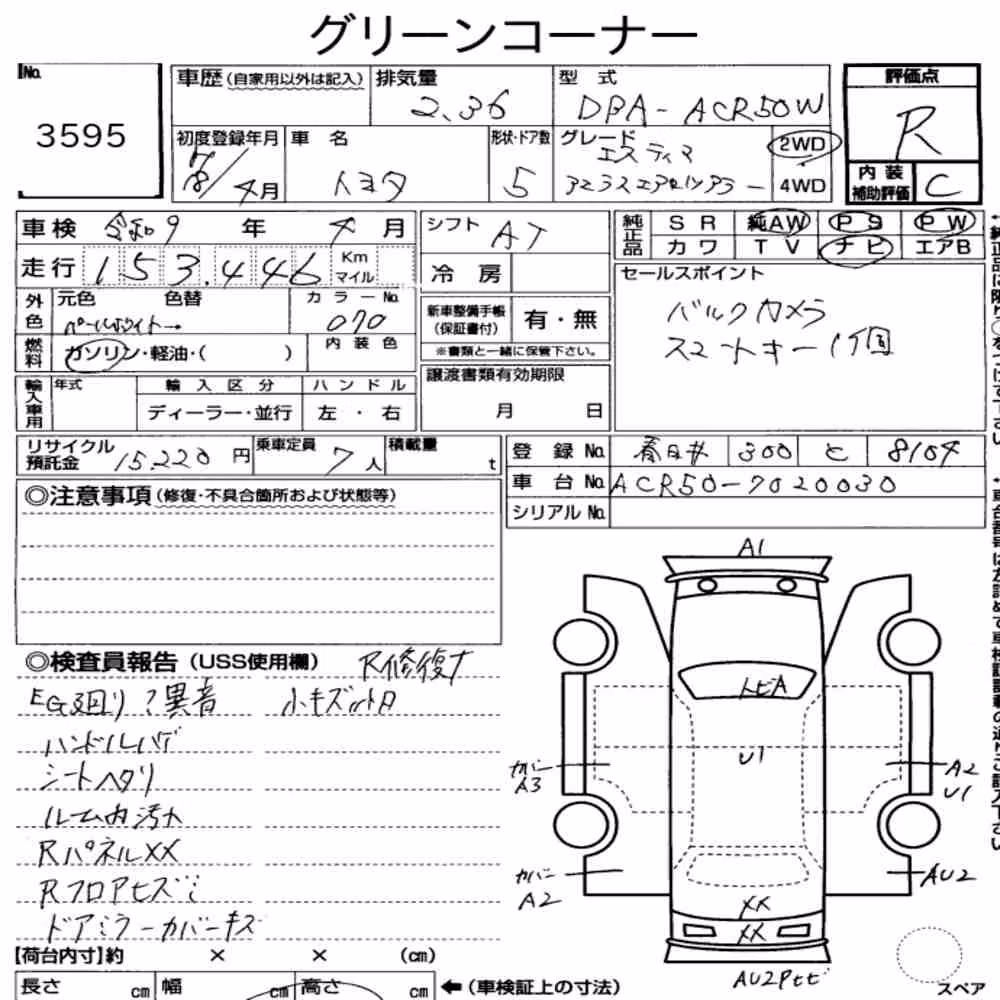 グリーンコーナー
No.
3595
車歴 (自家用以外は記入)
排気量
2.36
型 式
DBA-ACR50W
評価点
R
内装補助評価
C
初度登録年月
18/4月
車 名
トヨタ
形状・ドア数
5
グレード
エスティマ
アエラスエアロツアラー
2WD
4WD
車検 令和9 年 4 月
走行 153,446 Km マイル
外色 元色 色替
パールホワイト→
カラーNo.
070
燃料 ガソリン・軽油・( )
内装色
輸入車用 年式
輸入区分
ディーラー・並行
ハンドル
左 ・ 右
シフト AT
冷房
新車整備手帳
(保証書付)
有・無
※書類と一緒に保管下さい。
譲渡書類有効期限
月 日
純正品 SR 純AW PS PW
カワ TV ナビ エアB
セールスポイント
バックカメラ
スマートキー1個
リサイクル預託金 15,220 円
乗車定員 7 人
積載量 t
登録No. 春日井 300 と 8104
車台No. ACR50-7020030
シリアルNo.
◎注意事項 (修復・不具合箇所および状態等)
◎検査員報告 (USS使用欄) R修復大
EG廻り?異音 小キズ凹有
ハンドルハゲ
シートヘタリ
ルーム内汚れ
RパネルXX
Rフロアヒズミ
ドアミラーカバーキズ
A1
トビA
U1
カバー
A3
A2
U1
カバー
A2
AU2
XX
XX
AU2Pヒビ
スペア
【荷台内寸】約 × × (cm)
長さ cm 幅 cm 高さ cm
←(車検証上の寸法)